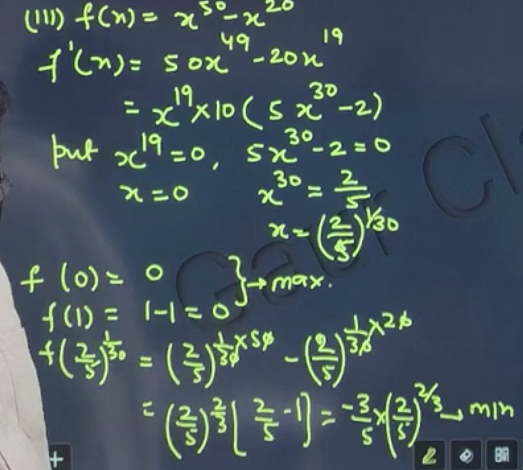 (III) f(x) = x^50 - x^20
f'(x) = 50x^49 - 20x^19
= x^19 × 10 ( 5 x^30 - 2)
put x^19 = 0, 5x^30 - 2 = 0
x = 0 x^30 = 2/5
x = (2/5)^1/30
f (0) = 0
f(1) = 1-1 = 0 } → max.
f(2/5)^1/30 = (2/5)^1/30×50 - (2/5)^1/30×20
= (2/5)^2/3 [ 2/5 - 1] = -3/5 × (2/5)^2/3 → min